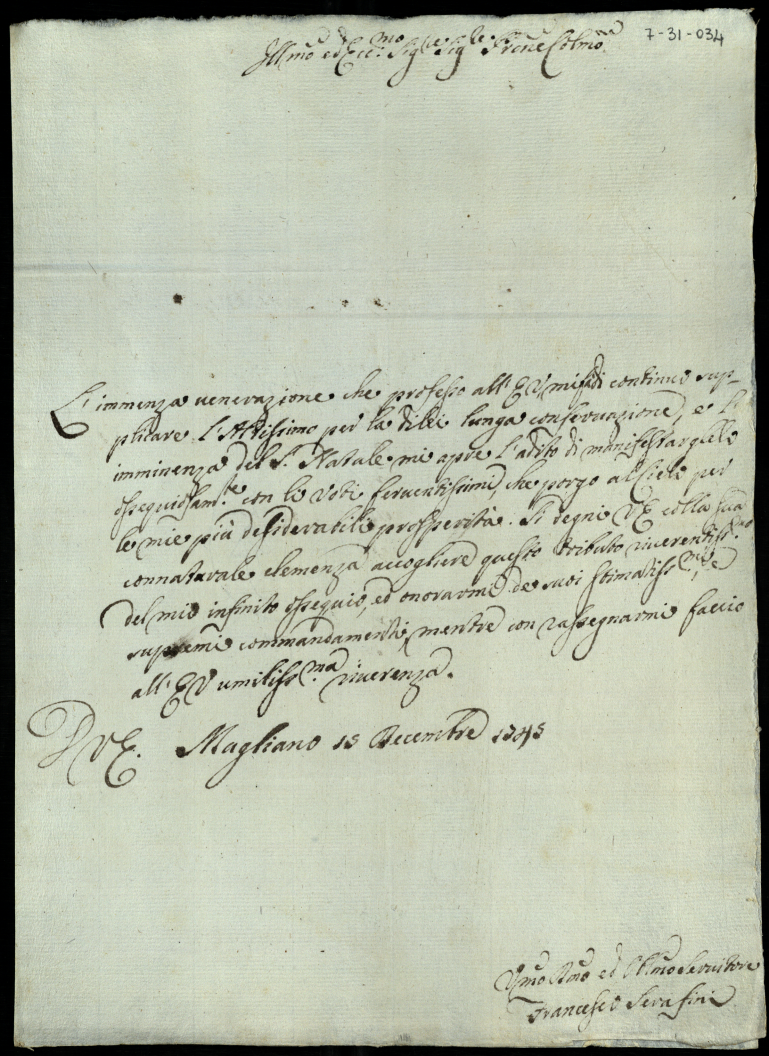 7-31-034
Ill.mo ed Ecc.mo Sig.re Sig.re P̃rne Colmo
L'immenza venerazione che professo all'E V, mi fà di continuo sup-
plicare l'Altissimo per la di lei lunga conservazione, e l'
imminenza del S. Natale mi apre l'adito di manifestarglelo
ossequiosam.te con li voti ferventissimi, che porgo al Cielo per
le mie più desiderabili prosperità. Si degni V E colla sua
connaturale clemenza accogliere questo tributo riverentiss.mo
del mio infinito ossequio, ed onorarmi de suoi stimatiss.mi, e
supremi commandamenti, mentre con rassegnarmi faccio
all'E V umiliss.ma riverenza.
D V E. Magliano 15 Decembre 1745
Umo Dmo ed Obl̃mo Servitore
Francesco Serafini